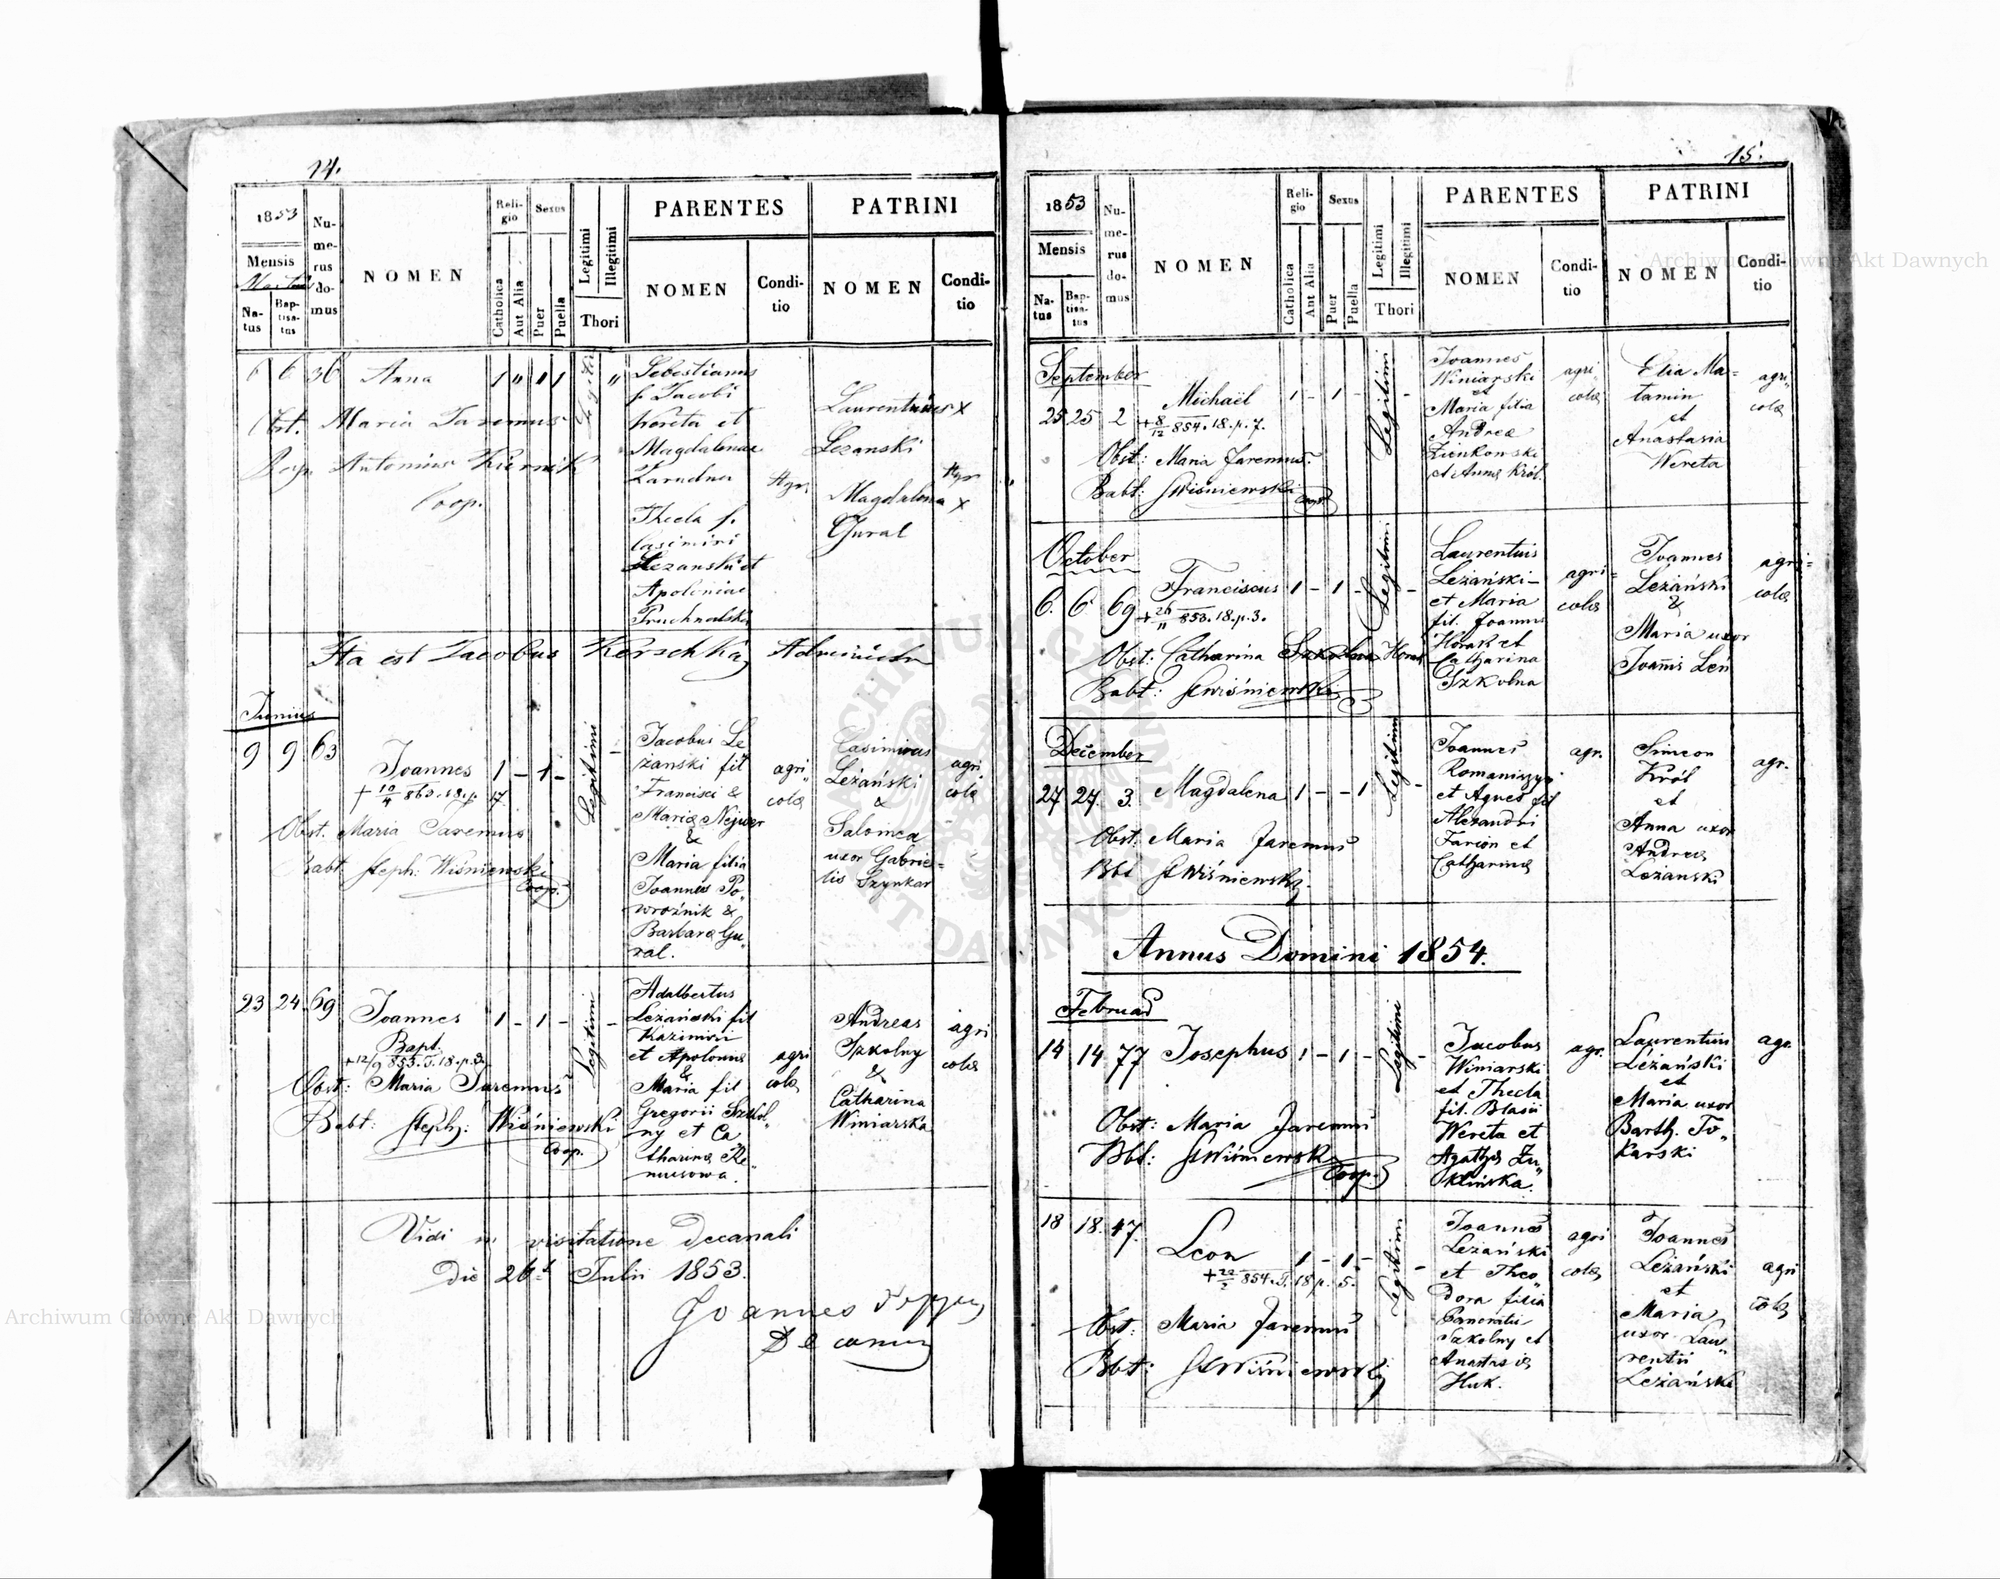 14.
1853
Mensis
Martius
Natus
Baptisatus
Numerus domus
NOMEN
Religio
Catholica
Aut Alia
Sexus
Puer
Puella
Legitimi
Illegitimi
Thori
PARENTES
NOMEN
Conditio
PATRINI
NOMEN
Conditio
6 6 36 Anna 1 " " 1 Legitimi "
Obst. Maria Jaremus
Bap. Antonius
Coop.
Sebestianus
f. Jacobi
Wereta et
Magdalenae
Zarudna
Thecla f.
Casimiri
Lezanski et
Apoloniae
Pruchnalska
Agr.
Laurentius x
Lezanski
Magdalena x
Gural
Agr.
Ita est Jacobus Kerschka Administr
Junius
9 9 63 Joannes 1 - 1 - Legitimi -
+ 10/4 863. 18. p. 17.
Obst. Maria Jaremus
Babt Steph: Wiśniewski
Coop.
Jacobus Le
zanski fil
Francisci &
Maria Nejwer
&
Maria filia
Joannes Po„
wroźnik &
Barbara Gu„
ral.
agri„
cola
Casimirus
Leżański
&
Salomea
uxor Gabrie=
lis Szynkar
agri„
cola
23 24 69 Joannes 1 - 1 - Legitimi -
Bapt.
+ 12/9 853. T. 18. p. 3.
Obst: Maria Jaremus
Babt: Steph: Wiśniewski
Coop.
Adalbertus
Leżański fil
Kazimiri
et Apolonia
&
Maria fil
Gregorii Szkol„
ny et Ca„
tharina Re„
musowa.
agri
cola
Andreas
Szkolny
&
Catharina
Winiarska
agri
cola
Vidi in visitatione Decanali
Die 26t Julii 1853.
Joannes
Decanus
15.
1853
Mensis
Natus
Baptisatus
Numerus domus
NOMEN
Religio
Catholica
Aut Alia
Sexus
Puer
Puella
Legitimi
Illegitimi
Thori
PARENTES
NOMEN
Conditio
PATRINI
NOMEN
Conditio
September
25 25 2 Michaël 1 - 1 - Legitimi -
+ 8/12 854. 18. p. 7.
Obst: Maria Jaremus.
Babt: StWiśniewski
Coop.
Joannes
Winiarski
et
Maria filia
Andrea
Zienkowski
et Anna Król.
agri
cola
Elia Ma=
tamin
et
Anastasia
Wereta
agri„
cola
October
6. 6 69 Franciscus 1 - 1 - Legitimi -
+ 26/11 853. 18. p. 3.
Obst: Catharina Szkolna Horak
Babt: StWiśniewski
Laurentius
Leżański -
et Maria
fil. Joannis
Horak et
Catharina
Szkolna
agri=
cola
Joannes
Leżański
&
Maria uxor
Joannis Leń
agri=
cola
December
27 27. 3. Magdalena 1 - - 1 Legitimi -
Obst: Maria Jaremus
Bbt StWiśniewski
Joannes
Romaniszyn
et Agnes fil
Alexandri
Farion et
Catharina
agr.
Simeon
Król
et
Anna uxor
Andrea
Lezanski
agr.
Annus Domini 1854.
Februar
14 14 77 Josephus 1 - 1 - Legitimi -
Obst: Maria Jaremus
Bbt: StWiśniewski
Coop.
Jacobus
Winiarski
et Thecla
fil. Blasii
Wereta et
Agatha Zu„
klińska.
agr.
Laurentius
Leżański
et
Maria uxor
Barth. To„
karski
agr.
18 18. 47. Leon 1 - 1 - Legitimi -
+ 22/2 854. T. 18 p. 5.
Obst: Maria Jaremus
Bbt: StWiśniewski
Joannes
Leżański
et Theo„
dora filia
Szkolny et
Anastasia
Huk.
agri
cola
Joannes
Leżański
et
Maria
uxor Lau„
rentii
Leżański
agri
cola
Archiwum Główne Akt Dawnych
Archiwum Główne Akt Dawnych
ARCHIWUM GŁÓWNE AKT DAWNYCH